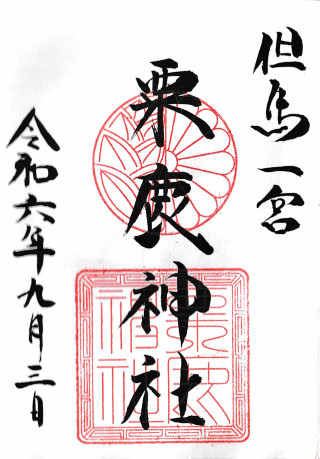 但馬一宮
粟鹿神社
令和六年九月三日
粟鹿神社